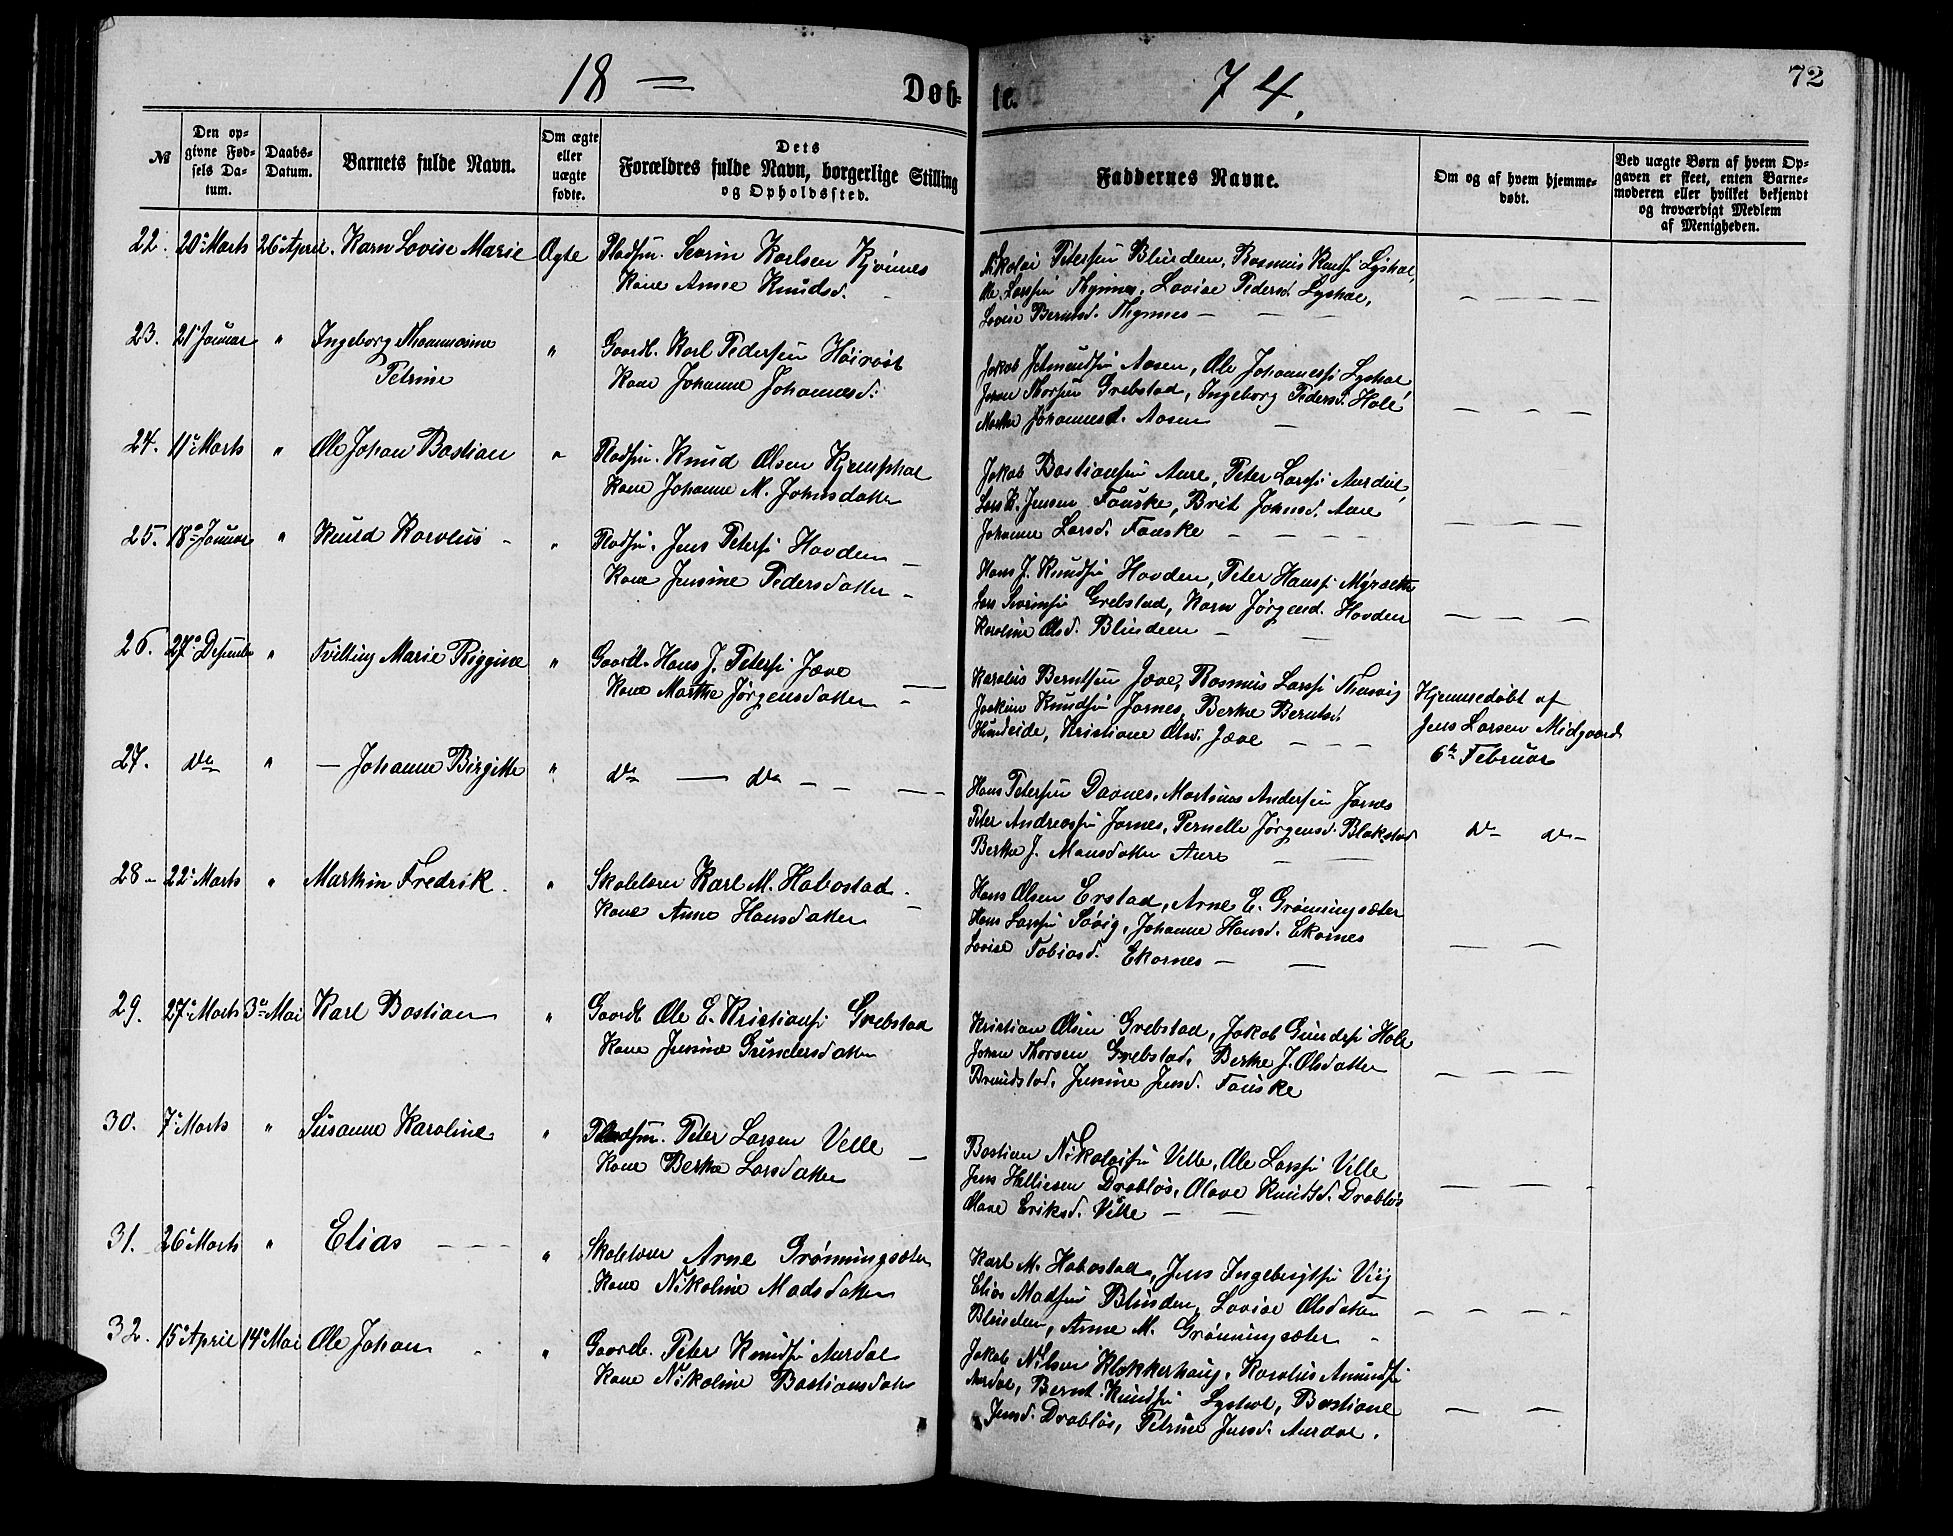 18 = Døb-
te. 74.
72
№
Den opgivne Fødsels Datum.
Daabs-Datum.
Barnets fulde Navn.
Om ægte eller uægte fødte.
Dets Forældres fulde Navn, borgerlige Stilling og Opholdssted.
Faddernes Navne.
Om og af hvem hjemmedøbt.
Ved uægte Børn af hvem Opgaven er skeet, enten Barnemoderen eller hvilket bekjendt og troværdigt Medlem af Menigheden.
22. 20de Marts 26de April. Karn Lovise Marie Ægte Pladsm. Severin Karlsen
Kone Anne Knudsd.
Nikolai Petersen Blindem, Rasmus Knuds. Lyshol,
Ole Larssen Thynnes, Lovise Pedersd. Lyshol,
Lovise Berntsd. Thynnes — — —
23. 21de Januar " Ingeborg Thomasine
Petrine
" Gaardb. Karl Pedersen
Kone Johanne Johannesd.
Jakob Aasen, Ole Johanness. Lyshol
Johan Thorsen Grebstad, Ingeborg Pedersd. Hole
Marthe Johannesd. Aasen —
24. 11te Marts " Ole Johan Bastian " Pladsm. Knud Olsen
Kone Johanne M. Johnsdatter
Jakob Bastiansen Aure, Peter Larss. Aurdal,
Lars B. Jensen Fauske, Brit Johnsd. Aure
Johanne Larsd. Fauske — — — —
25. 18de Januar " Knud Karolus - " Pladsm. Jens Peters. Hovden
Kone Jensine Pedersdatter -
Hans J. Knudsen Hovden, Peter Hanss. Myrsæter
Lars Severins. Grebstad, Karn Jørgensd. Hovden
Karoline Olsd. Blindem —
26. 27de December " Tvilling Marie Riggine " Gaardb. Hans J. Peters. Jæve
Kone Marthe Jørgensdatter -
Karolus Berntsen Jæve, Rasmus Larss.
Joakim Knudsen Jarnes, Berthe Berntsd.
Hundeide, Kristiane Olsd. Jæve — — —
Hjemmedøbt af
Jens Larsen Midgaard
6te Februar
27. do " — Johanne Birgitte " do — do — —
Hans Petersen Davnes, Martinus Andersen Jarnes
Peter Andreassen Jarnes, Pernelle Jørgensd. Blakstad
Berthe J. Monsdatter Aure — —
do do
28 - 22de Marts " Marthin Fredrik. " Skolelærer Karl M. Habostad
Kone Anne Hansdatter
Hans Olsen Erstad, Arne E. Grønningsæter
Hans Larssen Søvig, Johanne Hansd. Ekornes
Lovise Tobiasd. Ekornes — —
29. 27de Marts 3de Mai Karl Bastian " Gaardb. Ole E. Kristians. Grebstad
Kone Jensine Gundersdatter
Kristian Olsen Grebstad, Jakob Gunders. Hole
Johan Thorsen Grebstad, Berthe J. Olsdatter
Brundstad, Jensine Jensd. Fauske
30. 7de Marts " Susanne Karoline " Pladsm. Peter Larsen Velle —
Kone Berthe Larsdatter
Bastian Nikolaisen Velle, Ole Larssen Velle
Jens Helliesen Drabløs, Olave Knudsd. Drabløs
Olave Eriksd. Velle — —
31. 26de Marts " Elias — — — " Skolelærer Arne Grønningsæter
Kone Nikoline Madsdatter
Karl M. Habostad, Jens Ingebrigtsen Viig
Elias Madsen Blindem, Lovise Olsdatter
Blindem, Anne M. Grønningsæter -
32. 15de April 14de Mai Ole Johan - " Gaardb. Peter Knuds. Aurdal
Kone Nikoline Bastiansdatter
Jakob Nilsen Klokkerhaug, Karolus Amunds.
Aurdal, Bernt Knudsen Lyshol, Bastiane
Jensd. Drabløs, Petrine Jensd. Aurdal.